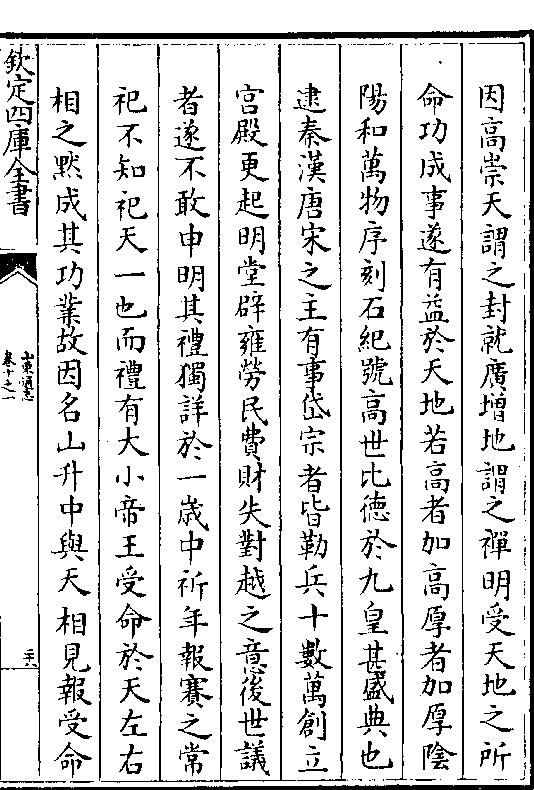 因高崇天謂之封就廣增地謂之禪明受天地之所
命功成事遂有益於天地若高者加高厚者加厚陰
陽和萬物序刻石紀號高世比德於九皇甚盛典也
逮秦漢唐宋之主有事岱宗者皆勒兵十數萬創立
宮殿更起明堂辟雍勞民費財失對越之意後世議
者遂不敢申明其禮獨詳於一歲中祈年報賽之常
祀不知祀天一也而禮有大小帝王受命於天左右
相之黙成其功業故因名山升中與天相見報受命
欽定四庫全書
山東通志
卷十之一
二六